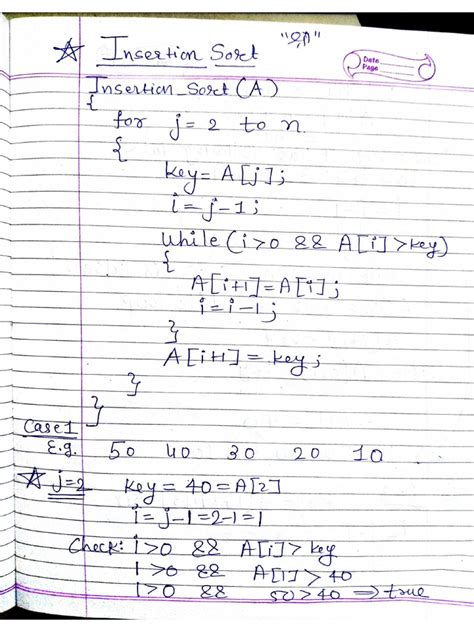 Insertion Sort
Date
Page
Insertion_Sort (A)
{
for j = 2 to n
{
key = A[j];
i = j-1;
while (i>0 && A[i]>key)
{
A[i+1] = A[i];
i = i-1;
}
A[i+1] = key;
}
}
Case 1
E.g. 50 40 30 20 10
j=2 key = 40 = A[2]
i = j-1 = 2-1 = 1
Check: i>0 && A[i] > key
1>0 && A[1] > 40
1>0 && 50 > 40 ⇒ true